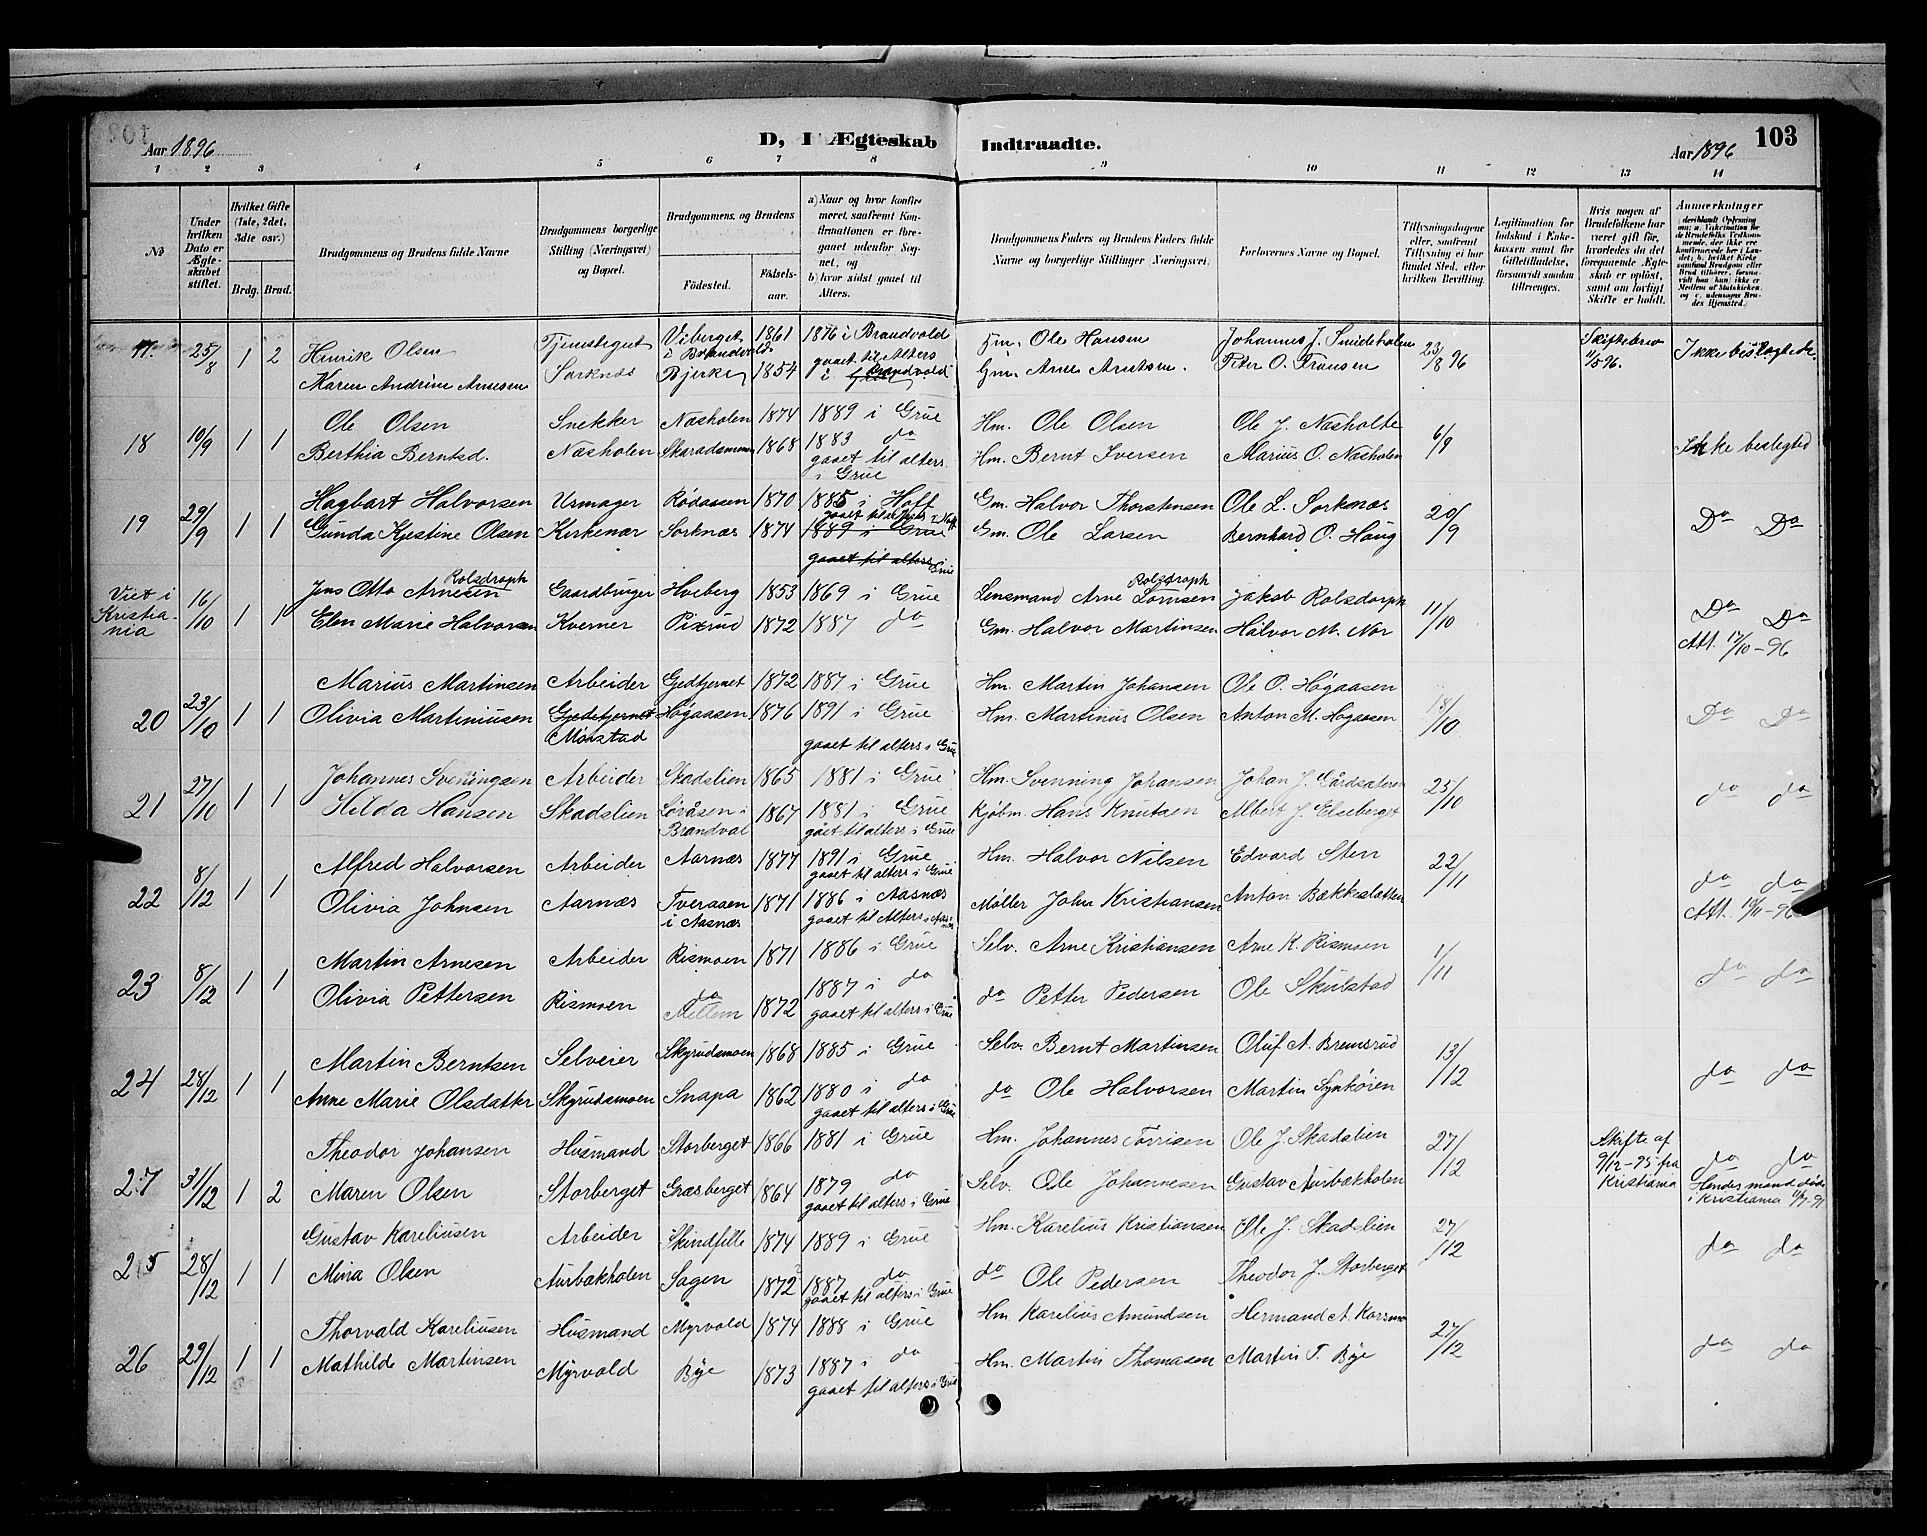 103
Aar 1896
D, I Ægteskab Indtraadte.
Aar 1896
1 2 3 4 5 6 7 8 9 10 11 12 13 14
No
Under hvilken Dato er Ægteskabet stiftet.
Hvilket Gifte (1ste, 2det, 3die osv.)
Brdg. Brud.
Brudgommens og Brudens fulde Navne
Brudgommens borgerlige Stilling (Næringsvei) og Bopæl.
Brudgommens, og Brudens
Födested.
Födselsaar.
a) Naar og hvor konfirmeret, saafremt Konfirmationen er foregaaet udenfor Sognet, og
b) hvor sidst gaaet til Alters.
Brudgommens Faders og Brudens Faders fulde Navne og borgerlige Stillinger (Næringsvei).
Forlovernes Navne og Bopæl.
Tillysningsdagene eller, saafremt Tillysning ei har fundet Sted, efter hvilken Bevilling.
Legitimation for Indskud i Enkekassen samt for Giftetilladelse, forsaavidt saadan tiltrænges.
Hvis nogen af Brudefolkene har været gift før, hvorledes da det foregaaende Ægteskab er oplöst, samt om lovligt Skifte er holdt.
Anmerkninger
17. 25/8 1 2 Henrik Olsen Tjenstegut Viberget i Brandvold 1861 1876 i Brandvold Gm. Ole Hansen Johannes J. Smideholen 23/8 96 Skiftebrev 11/5 96. Ikke beslegtede
Karen Andrine Arnesen Sorknæs Bjerke 1854 gaaet til Alters i Brandvold Gm. Arne Arntsen. Peter O. Fransen
18 10/9 1 1 Ole Olsen Snekker Næsholen 1874 1889 i Grue Hm. Ole Olsen Ole J. Næsholte 6/9 Ikke beslegted
Berthia Berntsd. Næsholen Skaradsmoen 1868 1883 do gaaet til alters i Grue Hm. Bernt Iversen Marius O. Næsholen
19 29/9 1 1 Hagbart Halvorsen Urmager Rødaasen 1870 1885 i Hoff Gm. Halvor Thorstensen Ole L. Sorknæs 20/9 Do Do
Gunda Kjestine Olsen Kirkenær Sorknæs 1874 1889 i Grue gaaet til alters i Grue Gm. Ole Larsen Bernhard O. Haug
Viet i Kristiania 16/10 1 1 Jens Otto Arnesen Rolsdroph Gaardbruger Hveberg 1853 1869 i Grue Lensmand Arne Tørnsen Rolsdroph Jakob Rolsdorph 11/10 Do Do
Elen Marie Halvorsen Kverner Pixrud 1872 1887 do Gm. Halvor Martinsen Halvor M. Nor Att. 17/10-96
20 23/10 1 1 Marius Martinsen Arbeider Gjedtjernet 1872 1887 i Grue Hm. Martin Johansen Ole O. Høgaasen 18/10 Do Do
Olivia Martiniusen Gjedetjernet Monstad Høgaasen 1876 1891 i Grue gaaet til alters i Grue Hm. Martinus Olsen Anton M. Høgaasen
21 27/10 1 1 Johannes Sveningsen Arbeider Skadslien 1865 1881 i Grue Hm. Svenning Johansen Johan J. Gårdsæteren 25/10 do do
Hilda Hansen Skadslien Søråsen i Brandval 1867 1881 i Grue gået til alters i Grue Kjøbm. Hans Knutsen Albert J. Elseberget
22 8/12 1 1 Alfred Halvorsen Arbeider Aarnæs 1877 1891 i Grue gaaet til alters i Grue Hm. Halvor Nilsen Edvard Sten 22/11 do do
Olivia Johnsen Aarnæs Tveraaen i Aasnæs 1871 1886 i Aasnæs gaaet til Alters i Aasnæs Møller John Kristiansen Anton Bækkeslatten Att. 19/11-96
23 8/12 1 1 Martin Arnesen Arbeider Rismoen 1871 1886 i Grue Selv. Arne Kristiansen Arne K. Rismoen 1/11 do do
Olivia Pettersen Rismoen do Mellem 1872 1887 i do gaaet til alters i Grue do Petter Pedersen Ole Skulstad
24 28/12 1 1 Martin Berntsen Selveier Skyrudsmoen 1868 1885 i Grue Selv. Bernt Martinsen Oluf A. Bremsrud 13/12 do do
Anne Marie Olsdatter Skyrudsmoen Snapa 1862 1880 i do gaaet til alters i Grue do Ole Halvorsen Martin Synkøien
27 31/12 1 2 Theodor Johansen Husmand Storberget 1866 1881 i Grue Hm. Johannes Torrisen Ole J. Skadslien 27/12 Skifte af 9/12-95 fra Kristiania do do
Maren Olsen Storberget Græsberget 1864 1879 do gaaet til alters i Grue Selv. Ole Johannesen Gustav Aurbækholen Hendes mand døde i Kristiania
25 28/12 1 1 Gustav Kareliusen Arbeider Skindfille 1874 1889 i Grue Hm. Karelius Kristiansen Ole J. Skadslien 27/12 do do
Mina Olsen Aurbækholen Sagen 1872 1887 do gaaet til alters i Grue do Ole Pedersen Theodor J. Storberget
26 29/12 1 1 Thorvald Kareliusen Husmand Myrvold 1874 1888 i Grue Hm. Karelius Amundsen Hermand A. Korsmo 27/12 do do
Mathilde Martinsen Myrvold Bye 1873 1887 i do gaaet til alters i Grue Hm. Martin Thomasen Martin T. Bye